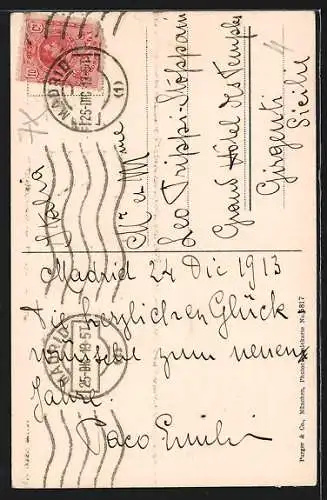 Italia
Mr et Mme
Leo Trippi-Moppain
Grand Hôtel des Temples
Girgenti
Sicilia
Madrid 24 Dic 1913
Die herzlichen Glück
wünsche zum neuen
Jahre!
Paco
MADRID
25·DIC 13·5T
(1)
MADRID
25·DIC 13·5T
(1)
Purger & Co., München, Photochromiekarte No. 5817